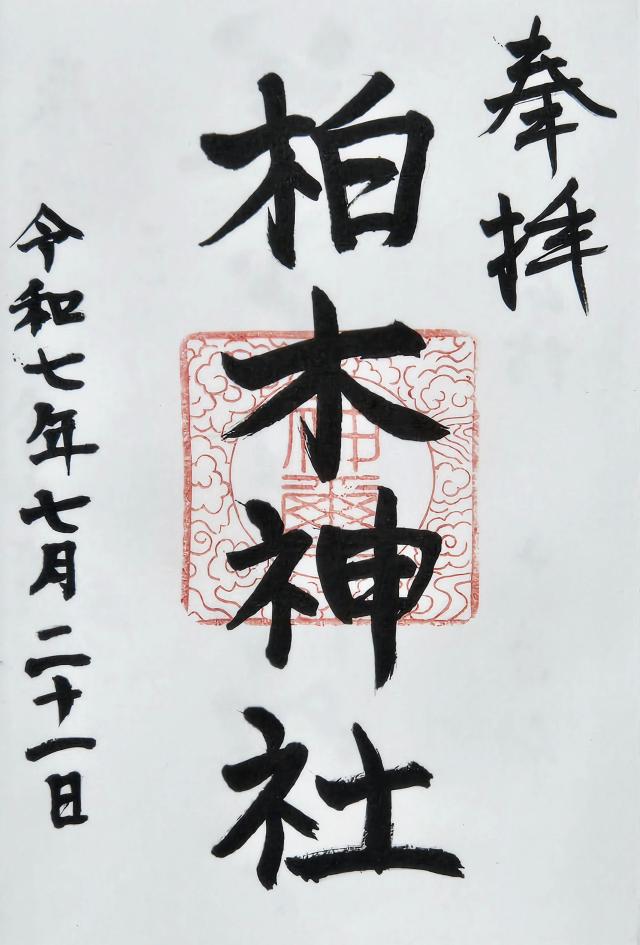 奉拝
柏木神社
令和七年七月二十一日